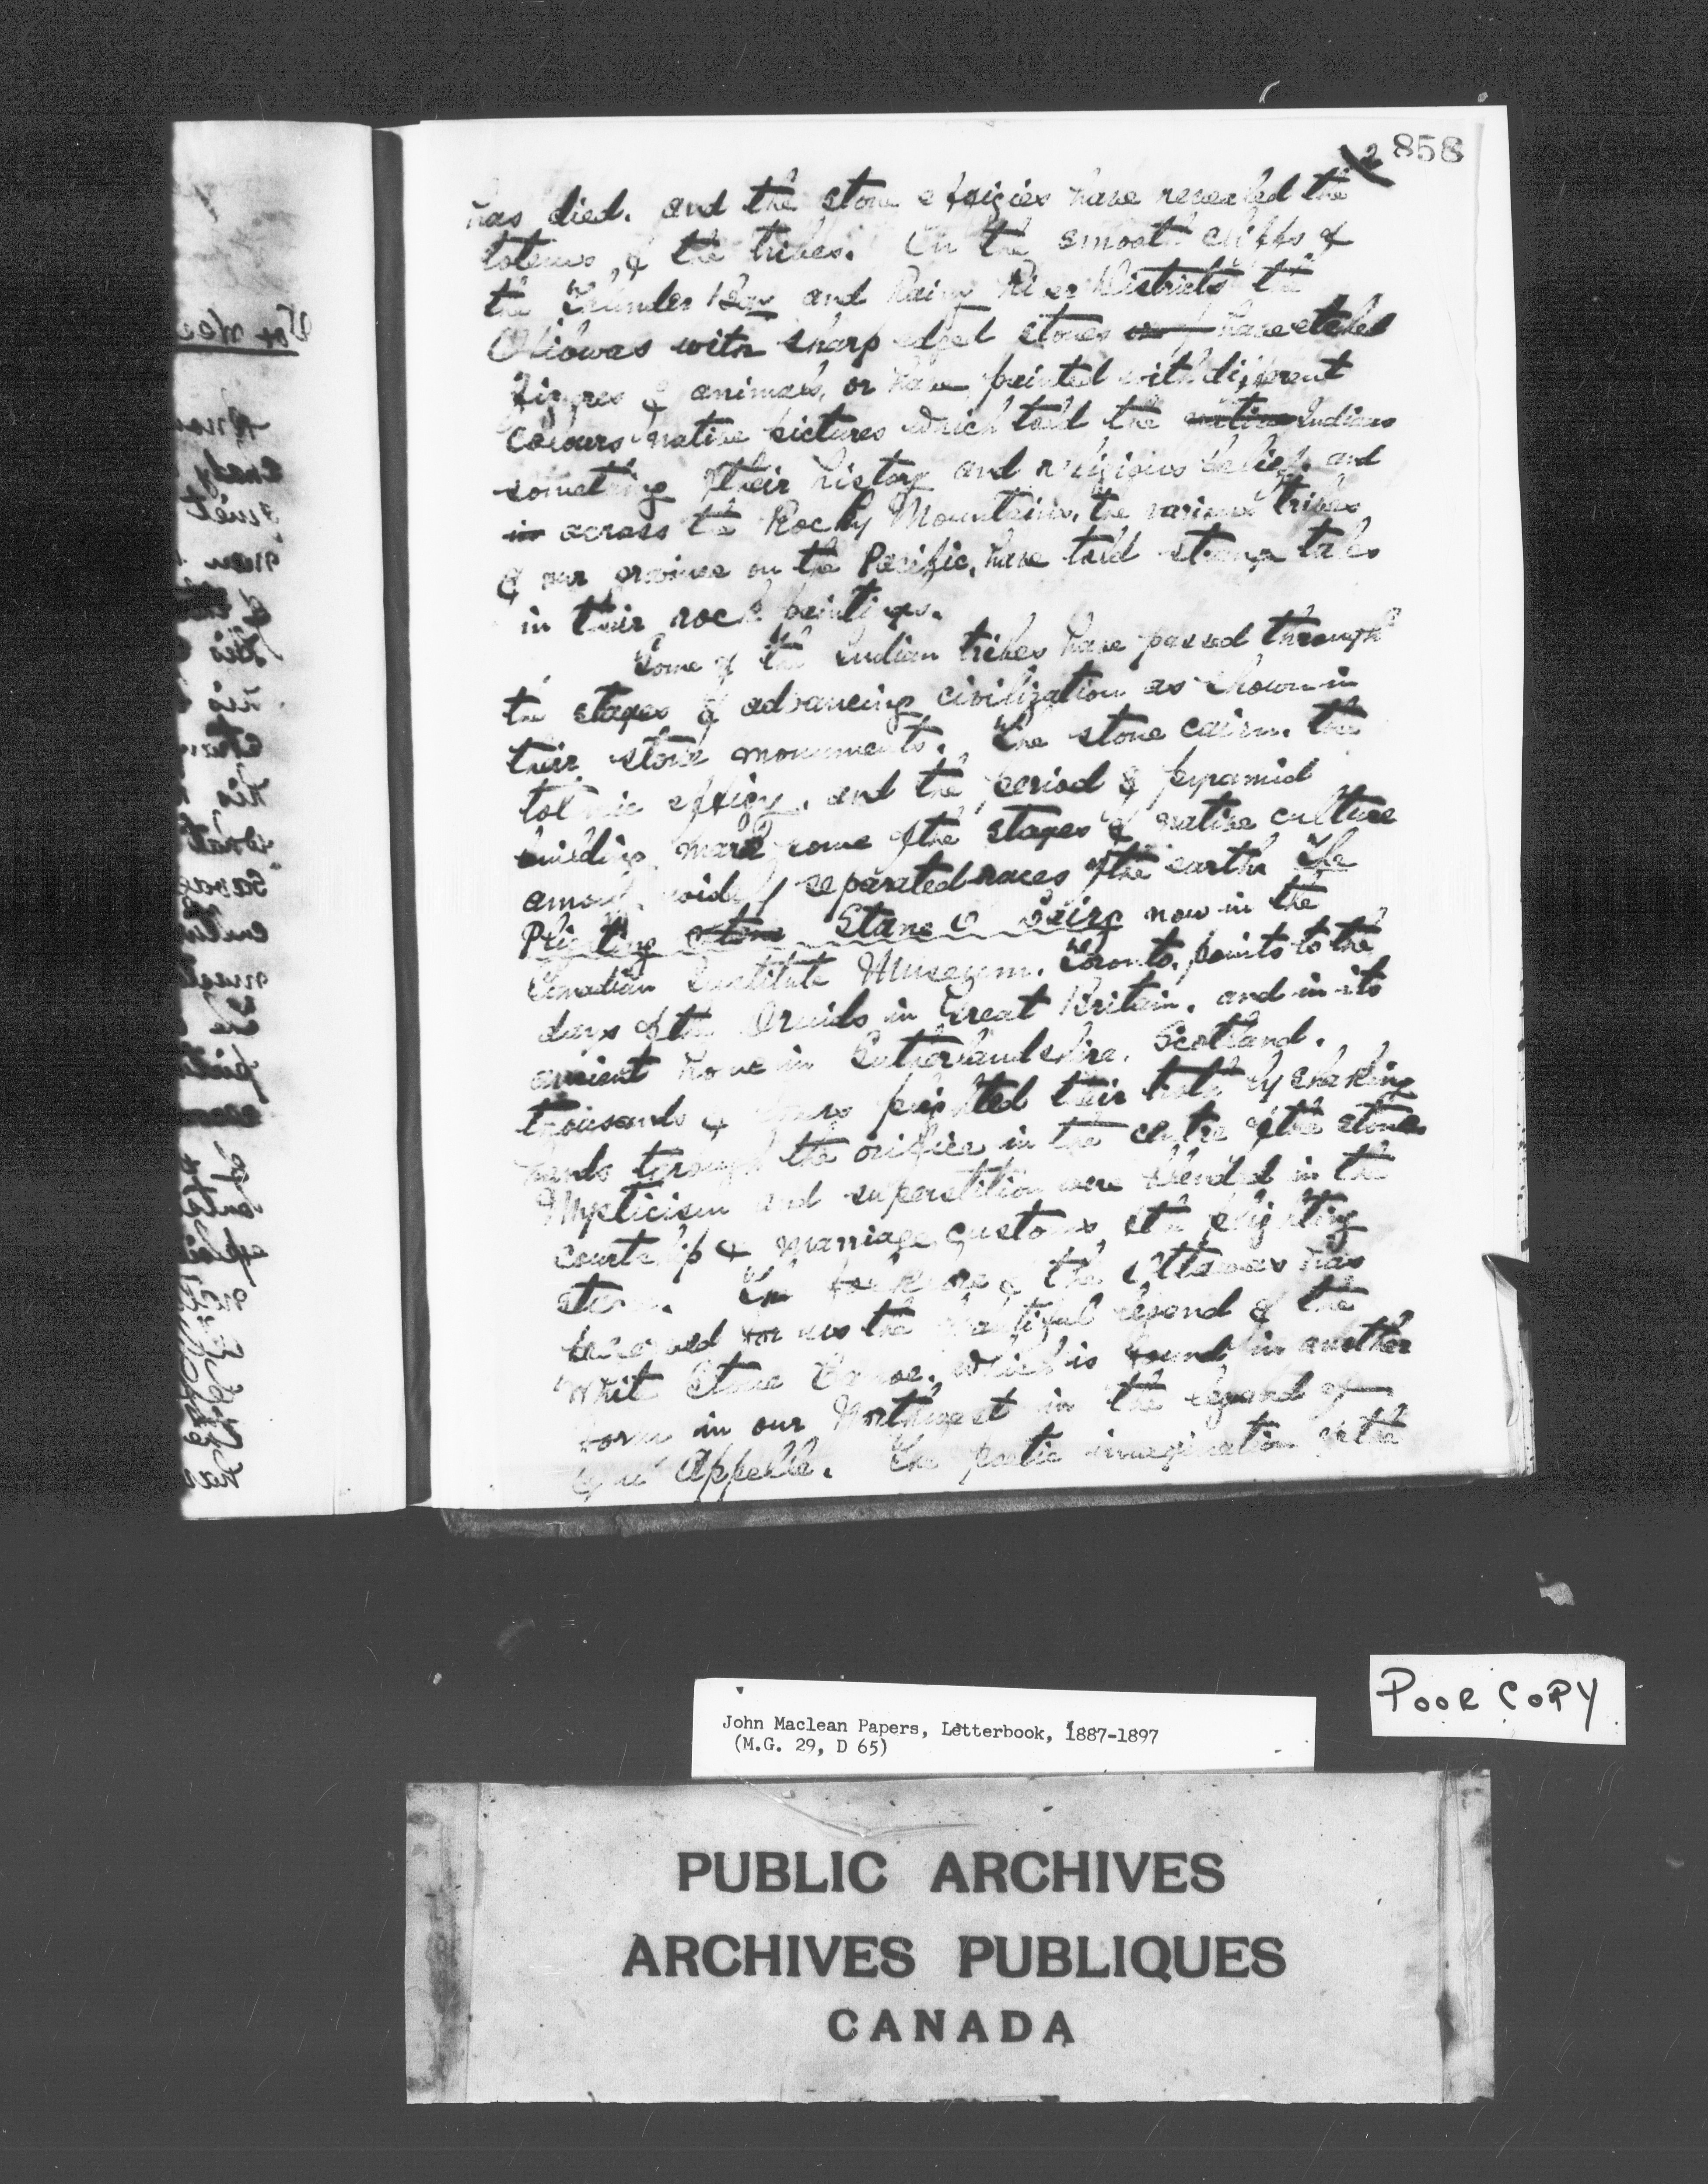 2 858
has died, and the stone effigies have revealed the
totems of the tribes. On the smooth cliffs of
the Thunder Bay and Rainy River Districts the
Ojibways with sharp edged stones have etched
figures of animals, or have painted with different
colours native pictures which told the native Indians
something of their history and religious belief, and
in across the Rocky Mountains, the various tribes
of our province on the Pacific, have told strange tales
in their rock paintings.
Some of the Indian tribes have passed through
the stages of advancing civilization as shown in
their stone monuments. The stone cairn, the
totemic effigy, and the period of pyramid
building, mark some of the stages of native culture
among widely separated races of the earth. The
Plighting Stone Stane now in the
Canadian Institute Museum, Toronto, points to the
days of the Druids in Great Britain, and in its
ancient home in Sutherlandshire, Scotland,
thousands of plighted their troth by shaking
hands through the orifice in the centre of the stone.
Mysticism and superstition were blended in the
courtship & marriage customs of the plighting
stone. The folk lore of the Ottawas has
preserved for us the beautiful legend of the
White Stone Canoe, which is found in another
form in our Northwest in the legend of
Qu'Appelle. The poetic imagination of the
John Maclean Papers, Letterbook, 1887-1897
(M.G. 29, D 65)
POOR COPY
PUBLIC ARCHIVES
ARCHIVES PUBLIQUES
CANADA